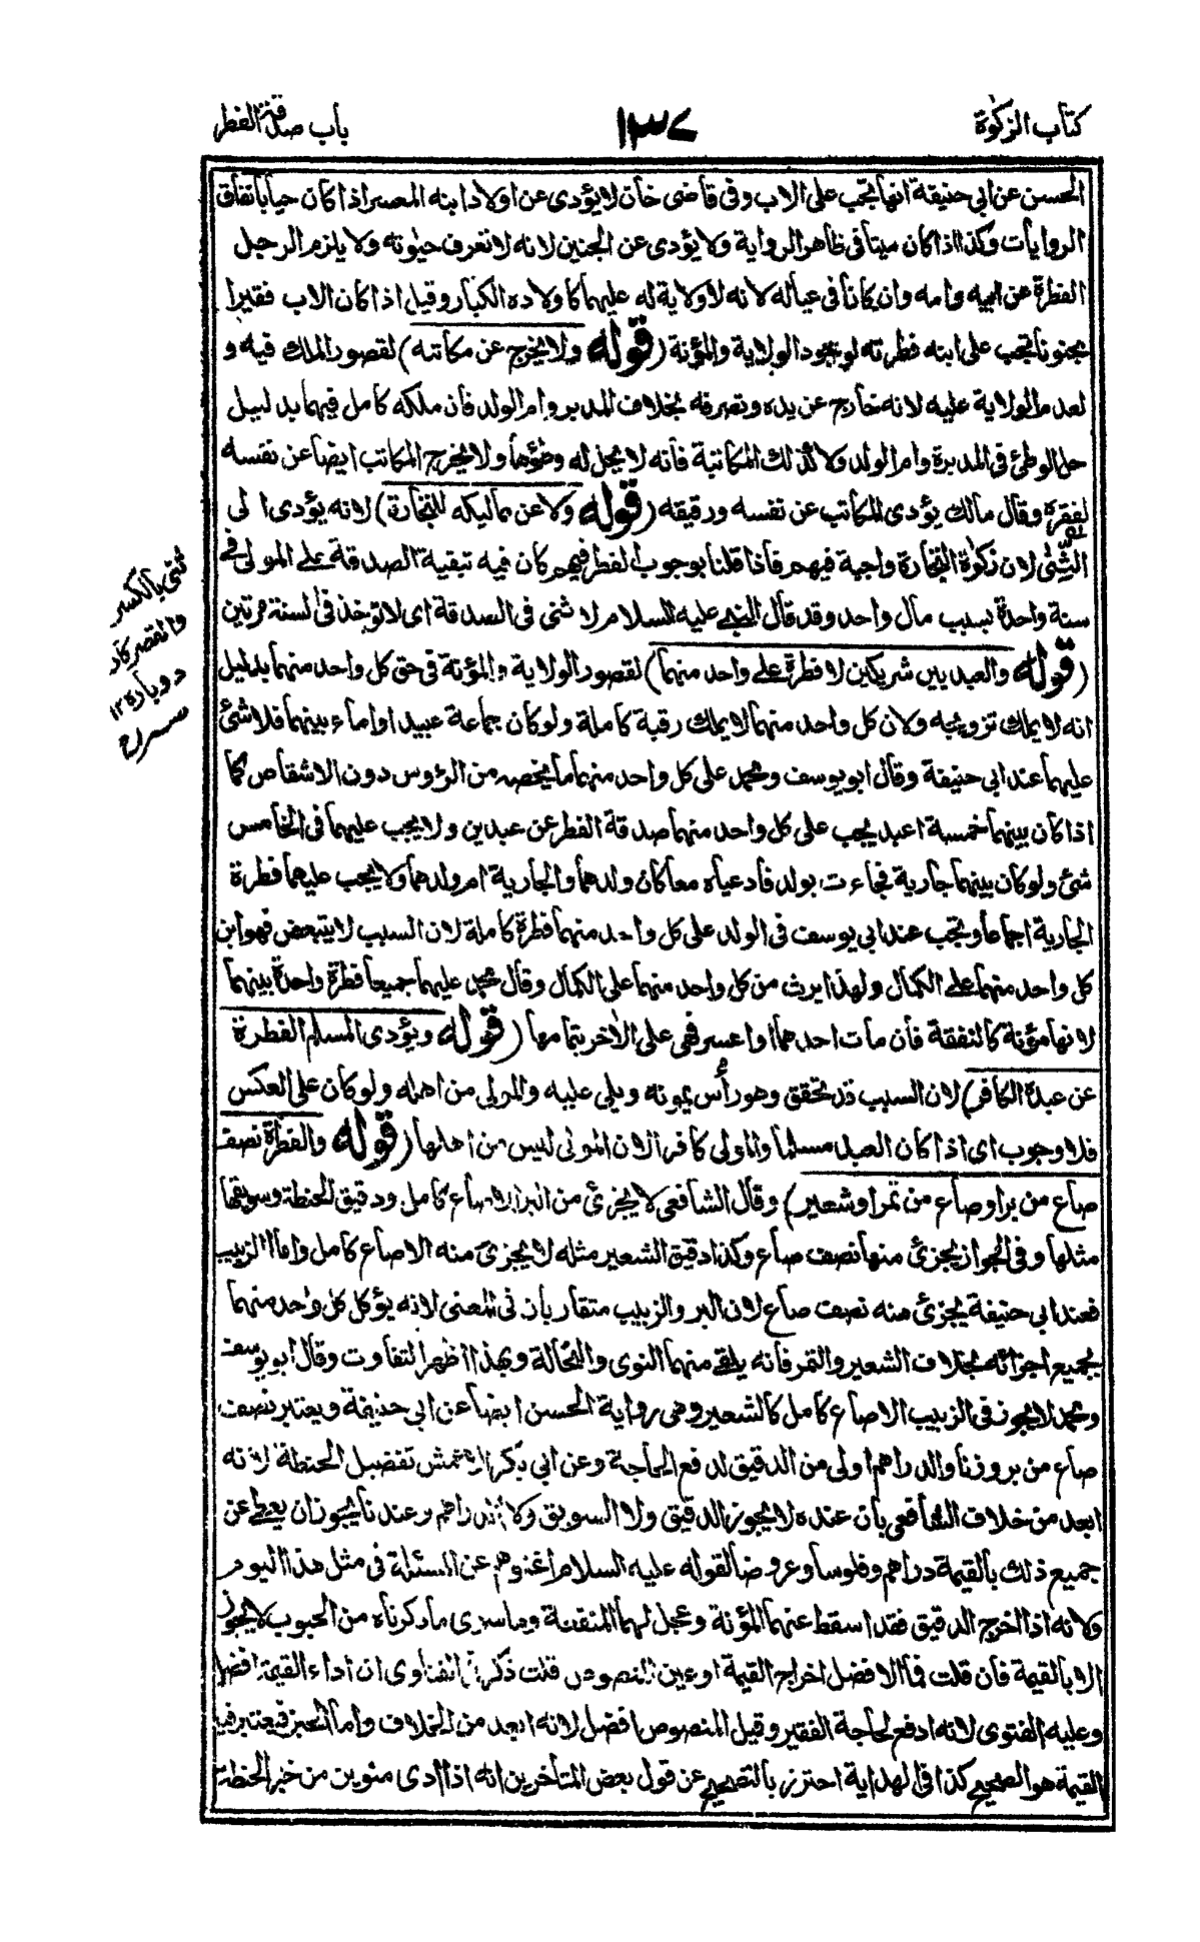 كتاب الزكوة
١٣٧
باب صدقة الفطر
الحسن عن ابي حنيفة انها تجب على الاب وفى قاضى خان لا يؤدى عن اولاد ابنه المعسر اذا كان حيا باتفاق
الروايات وكذا اذا كان ميتا فى ظاهر الرواية ولا يؤدى عن الجنين لانه لا تعرف حيٰوته ولا يلزم الرجل
الفطرة عن ابيه وامه وان كانا فى عياله لانه لا ولاية له عليهما كاولاده الكبار وقيل اذا كان الاب فقيرا
مجنونا تجب على ابنه فطرته لوجود الولاية والمؤنة (قوله ولا يخرج عن مكاتبه) لقصور الملك فيه و
لعدم الولاية عليه لانه خارج عن يده وتصرفه بخلاف المدبر وام الولد فان ملكه كامل فيهما بدليل
حل الوطئ فى المدبرة وام الولد ولا كذلك المكاتبة فانه لا يحل له وطؤها ولا يخرج المكاتب ايضا عن نفسه
لفقره وقال مالك يؤدى المكاتب عن نفسه ورقيقه (قوله ولا عن مماليكه للتجارة) لانه يؤدى الى
الثِّنٰى لان زكوٰة التجارة واجبة فيهم فاذا قلنا بوجوب الفطر فيهم كان فيه تبقية الصدقة على المولى فى
سنة واحدة بسبب مال واحد وقد قال النبى عليه السلام لا ثنى فى الصدقة اى لا تؤخذ فى السنة مرتين
(قوله والعبد بين شريكين لا فطرة على واحد منهما) لقصور الولاية والمؤنة فى حق كل واحد منهما بدليل
انه لا يملك تزويجه ولان كل واحد منهما لا يملك رقبة كاملة ولو كان جماعة عبيد او اماء بينهما فلا شئ
عليهما عند ابى حنيفة وقال ابو يوسف ومحمد على كل واحد منهما ما يخصه من الرؤس دون الاشقاص كما
اذا كان بينهما خمسة اعبد يجب على كل واحد منهما صدقة الفطر عن عبدين ولا يجب عليهما فى الخامس
شئ ولو كان بينهما جارية فجاءت بولد فادعياه معا كان ولدهما والجارية ام ولدهما ولا يجب عليهما فطرة
الجارية اجماعا وتجب عند ابى يوسف فى الولد على كل واحد منهما فطرة كاملة لان السبب لا يتبعض فهو ابن
كل واحد منهما على الكمال ولهذا يرث من كل واحد منهما على الكمال وقال محمد عليهما جميعا فطرة واحدة بينهما
لانها مؤنة كالنفقة فان مات احدهما او اعسر فهى على الاٰخر بتمامها (قوله ويؤدى المسلم الفطرة
عن عبده الكافر) لان السبب قد تحقق وهو رأس يمونه ويلى عليه والمولى من اهله ولو كان على العكس
فلا وجوب اى اذا كان العبد مسلما والمولى كافرا لان المولى ليس من اهلها (قوله والفطرة نصف
صاع من بر او صاع من تمر او شعير) وقال الشافعى لا يجزئ من البر الا صاع كامل ودقيق الحنطة وسويقها
مثلها وفى الجواز يجزئ منها نصف صاع وكذا دقيق الشعير مثله لا يجزئ منه الا صاع كامل واما الزبيب
فعند ابى حنيفة يجزئ منه نصف صاع لان البر والزبيب متقاربان فى المعنى لانه يؤكل كل واحد منهما
بجميع اجزائه بخلاف الشعير والتمر فانه يلقى منهما النوى والنخالة وبهذا اظهر التفاوت وقال ابو يوسف
ومحمد لا يجوز فى الزبيب الا صاع كامل كالشعير وهى رواية الحسن ايضا عن ابى حنيفة ويعتبر نصف
صاع من بر وزنا والدراهم اولى من الدقيق لدفع الحاجة وعن ابى بكر الاعمش تفضيل الحنطة لانه
ابعد من خلاف الشافعى بان عنده لا يجوز الدقيق ولا السويق ولا الدراهم وعندنا يجوز ان يعطى عن
جميع ذلك بالقيمة دراهم وفلوسا وعروضا لقوله عليه السلام اغنوهم عن المسئلة فى مثل هذا اليوم
ولانه اذا اخرج الدقيق فقد اسقط عنهما المؤنة وعجل لهما المنفعة وما سوى ما ذكرناه من الحبوب لا يجوز
الا بالقيمة فان قلت فما الافضل اخراج القيمة او عين المنصوص قلت ذكر فى الفتاوى ان اداء القيمة افضل
وعليه الفتوى لانه ادفع لحاجة الفقير وقيل المنصوص افضل لانه ابعد من الخلاف واما الخبز فيعتبر فيه
القيمة هو الصحيح كذا فى الهداية احترز بالتصحيح عن قول بعض المتأخرين انه اذا ادى منوين من خبز الحنطة
ثنى بالكسر
والقصر كار
دوباره ١٢
صراح